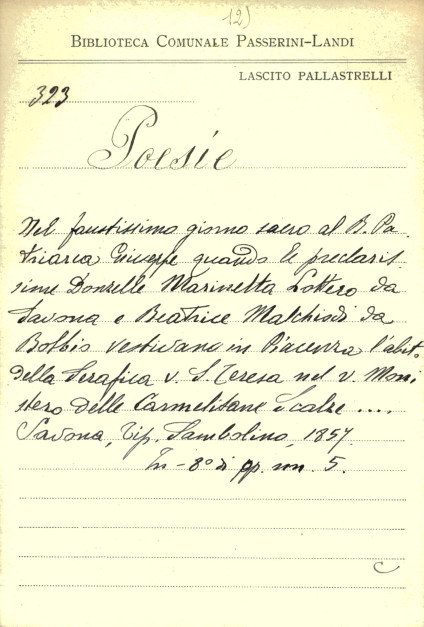 12)
BIBLIOTECA COMUNALE PASSERINI-LANDI
LASCITO PALLASTRELLI
323
Poesie
Nel faustissimo giorno sacro al B. Pa
triarca Giuseppe quando le preclaris
sime Donzelle Marinetta Lottero da
Savona e Beatrice Malchiodi da
Bobbio vestivano in Piacenza l'abito
della Serafica v. S. Teresa nel v. Moni
stero delle Carmelitane Scalze ....
Savona, Tip. Sambolino, 1857.
In - 8° di pp. nn. 5.
C